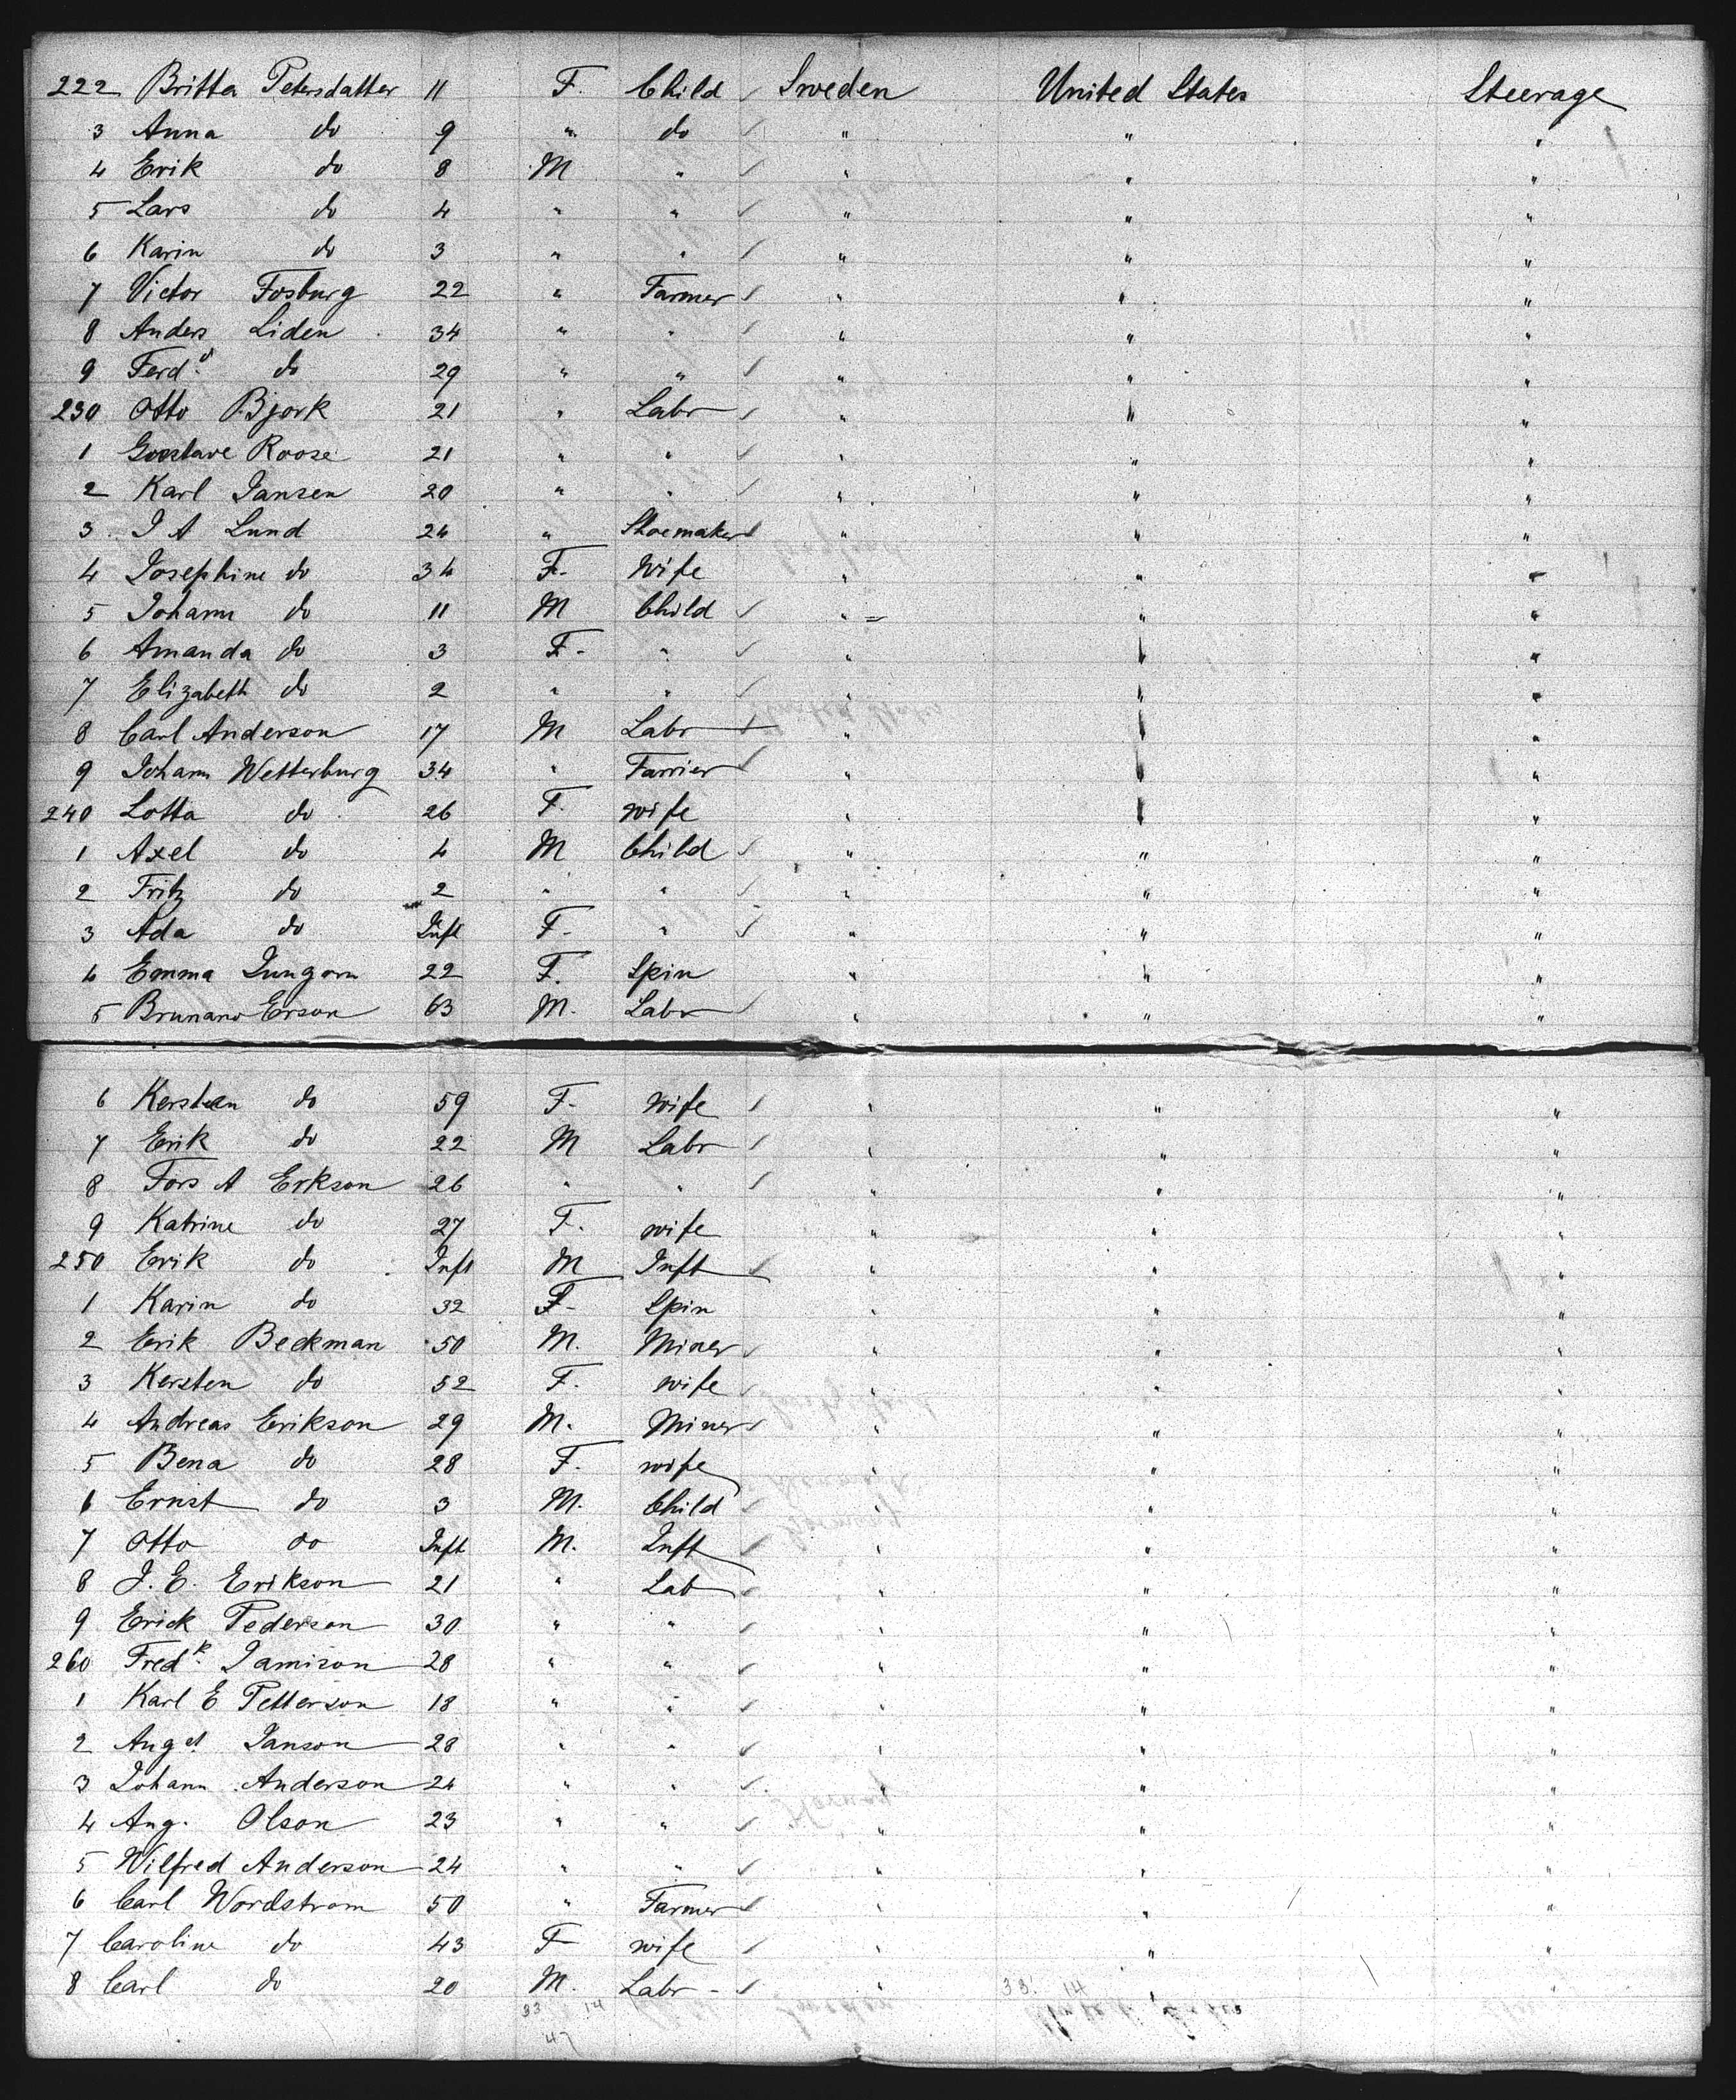 222 Britta Petersdatter 11 F. Child Sweden United States Steerage
3 Anna do 9 " do " " "
4 Erik do 8 M " " " "
5 Lars do 4 " " " " "
6 Karin do 3 " " " " "
7 Victor Fosburg 22 " Farmer " " "
8 Anders Liden 34 " " " " "
9 Ferd.d do 29 " " " " "
230 Otto Bjork 21 " Labr " " "
1 Goostave Roose 21 " " " " "
2 Karl Jansen 20 " " " " "
3 J A Lund 24 " Shoemaker " " "
4 Josephine do 34 F. Wife " " "
5 Johann do 11 M Child " " "
6 Amanda do 3 F. " " " "
7 Elizabeth do 2 " " " " "
8 Carl Anderson 17 M Labr " " "
9 Johann Wetterburg 34 " Farrier " " "
240 Lotta do 26 F. wife " " "
1 Axel do 4 M Child " " "
2 Fritz do 2 " " " " "
3 Ada do Inft F. " " " "
4 Emma Jungorn 22 F. Spin " " "
5 Brunano Erson 63 M. Labr " " "
6 Kersteen do 59 F. Wife " " "
7 Erik do 22 M Labr " " "
8 Fors A Erkson 26 " " " " "
9 Katrine do 27 F. wife " " "
250 Erik do Inft M Inft " " "
1 Karin do 32 F. Spin " " "
2 Erik Beckman 50 M. Miner " " "
3 Kersten do 52 F. wife " " "
4 Andreas Erikson 29 M. Miner " " "
5 Bena do 28 F. wife " " "
6 Ernst do 3 M. Child " " "
7 Otto do Inft M. Inft " " "
8 J. E. Erikson 21 " Lab " " "
9 Erick Pederson 30 " " " " "
260 Fredk. Jamison 28 " " " " "
1 Karl E Petterson 18 " " " " "
2 Augst. Janson 28 " " " " "
3 Johann Anderson 24 " " " " "
4 Aug. Olson 23 " " " " "
5 Wilfred Anderson 24 " " " " "
6 Carl Wordstrom 50 " Farmer " " "
7 Caroline do 43 F wife " " "
8 Carl do 20 M. Labr " " "
33 14 33 14
47